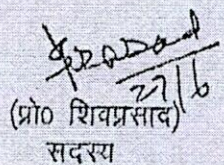 27/6
(प्रो० शिवप्रसाद)
सदस्य